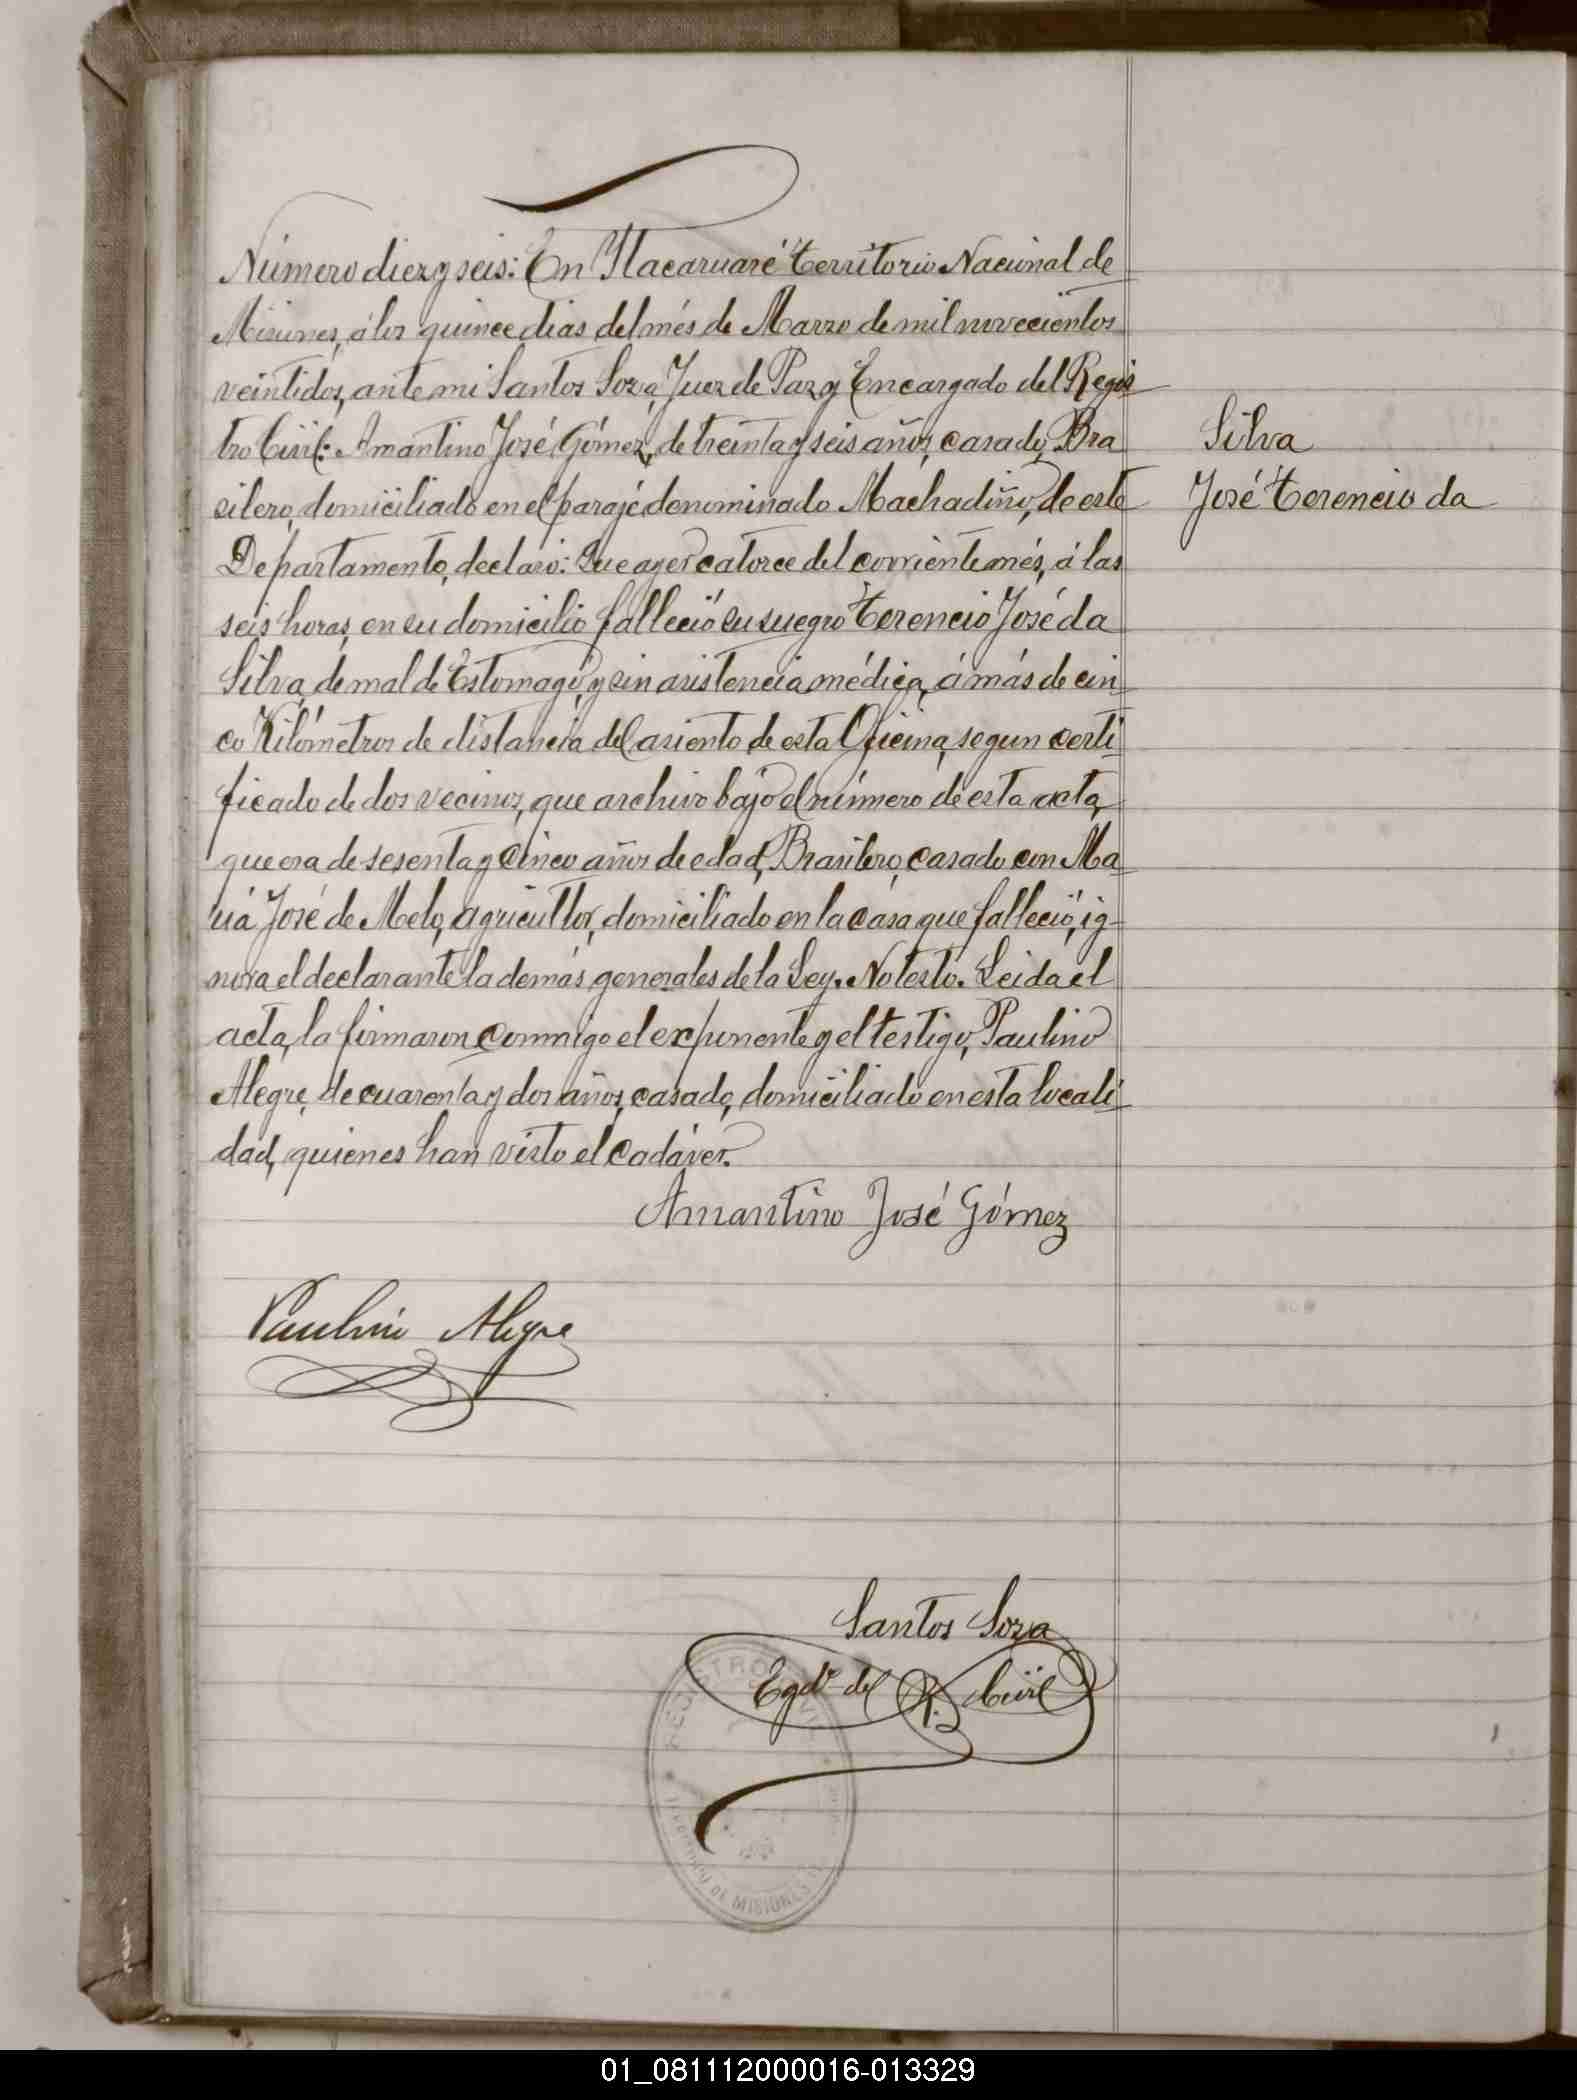 Número diez y seis: En Itacaruaré Territorio Nacional de
Misiones, á los quince dias del més de Marzo de mil novecientos
veintidós, ante mi Santos Soza, Juez de Paz y Encargado del Regis
tro Civil: Amantino José Gómez, de treinta y seis años, casado, Bra
silero, domiciliado en el paraje denominado Machadiño, de este
Departamento, declaró: Que ayer catorce del corriente més, á las
seis horas, en su domicilio falleció su suegro Terencio José da
Silva, de mal de Estomago, y sin asistencia médica, á más de cin_
co Kilómetros de distancia del asiento de esta Oficina, segun certi_
ficado de dos vecinos, que archivo bajo el número de esta acta,
que era de sesenta y cinco años de edad, Brasilero, casado con Ma_
riá José de Melo, agricultor, domiciliado en la casa que falleció, ig-
nora el declarante la demás generales de la Ley. No testó. Leida el
acta, la firmaron conmigo el exponente y el testigo, Paulino
Alegre, de cuarenta y dos años, casado, domiciliado en esta locali_
dad, quienes han visto el cadáver.
Silva
José Terencio da
Amantino José Gómez
Paulino Alegre
Santos Soza
Egdo. del R. Civil
REGISTRO CIVIL
DE MISIONES
01_081112000016-013329